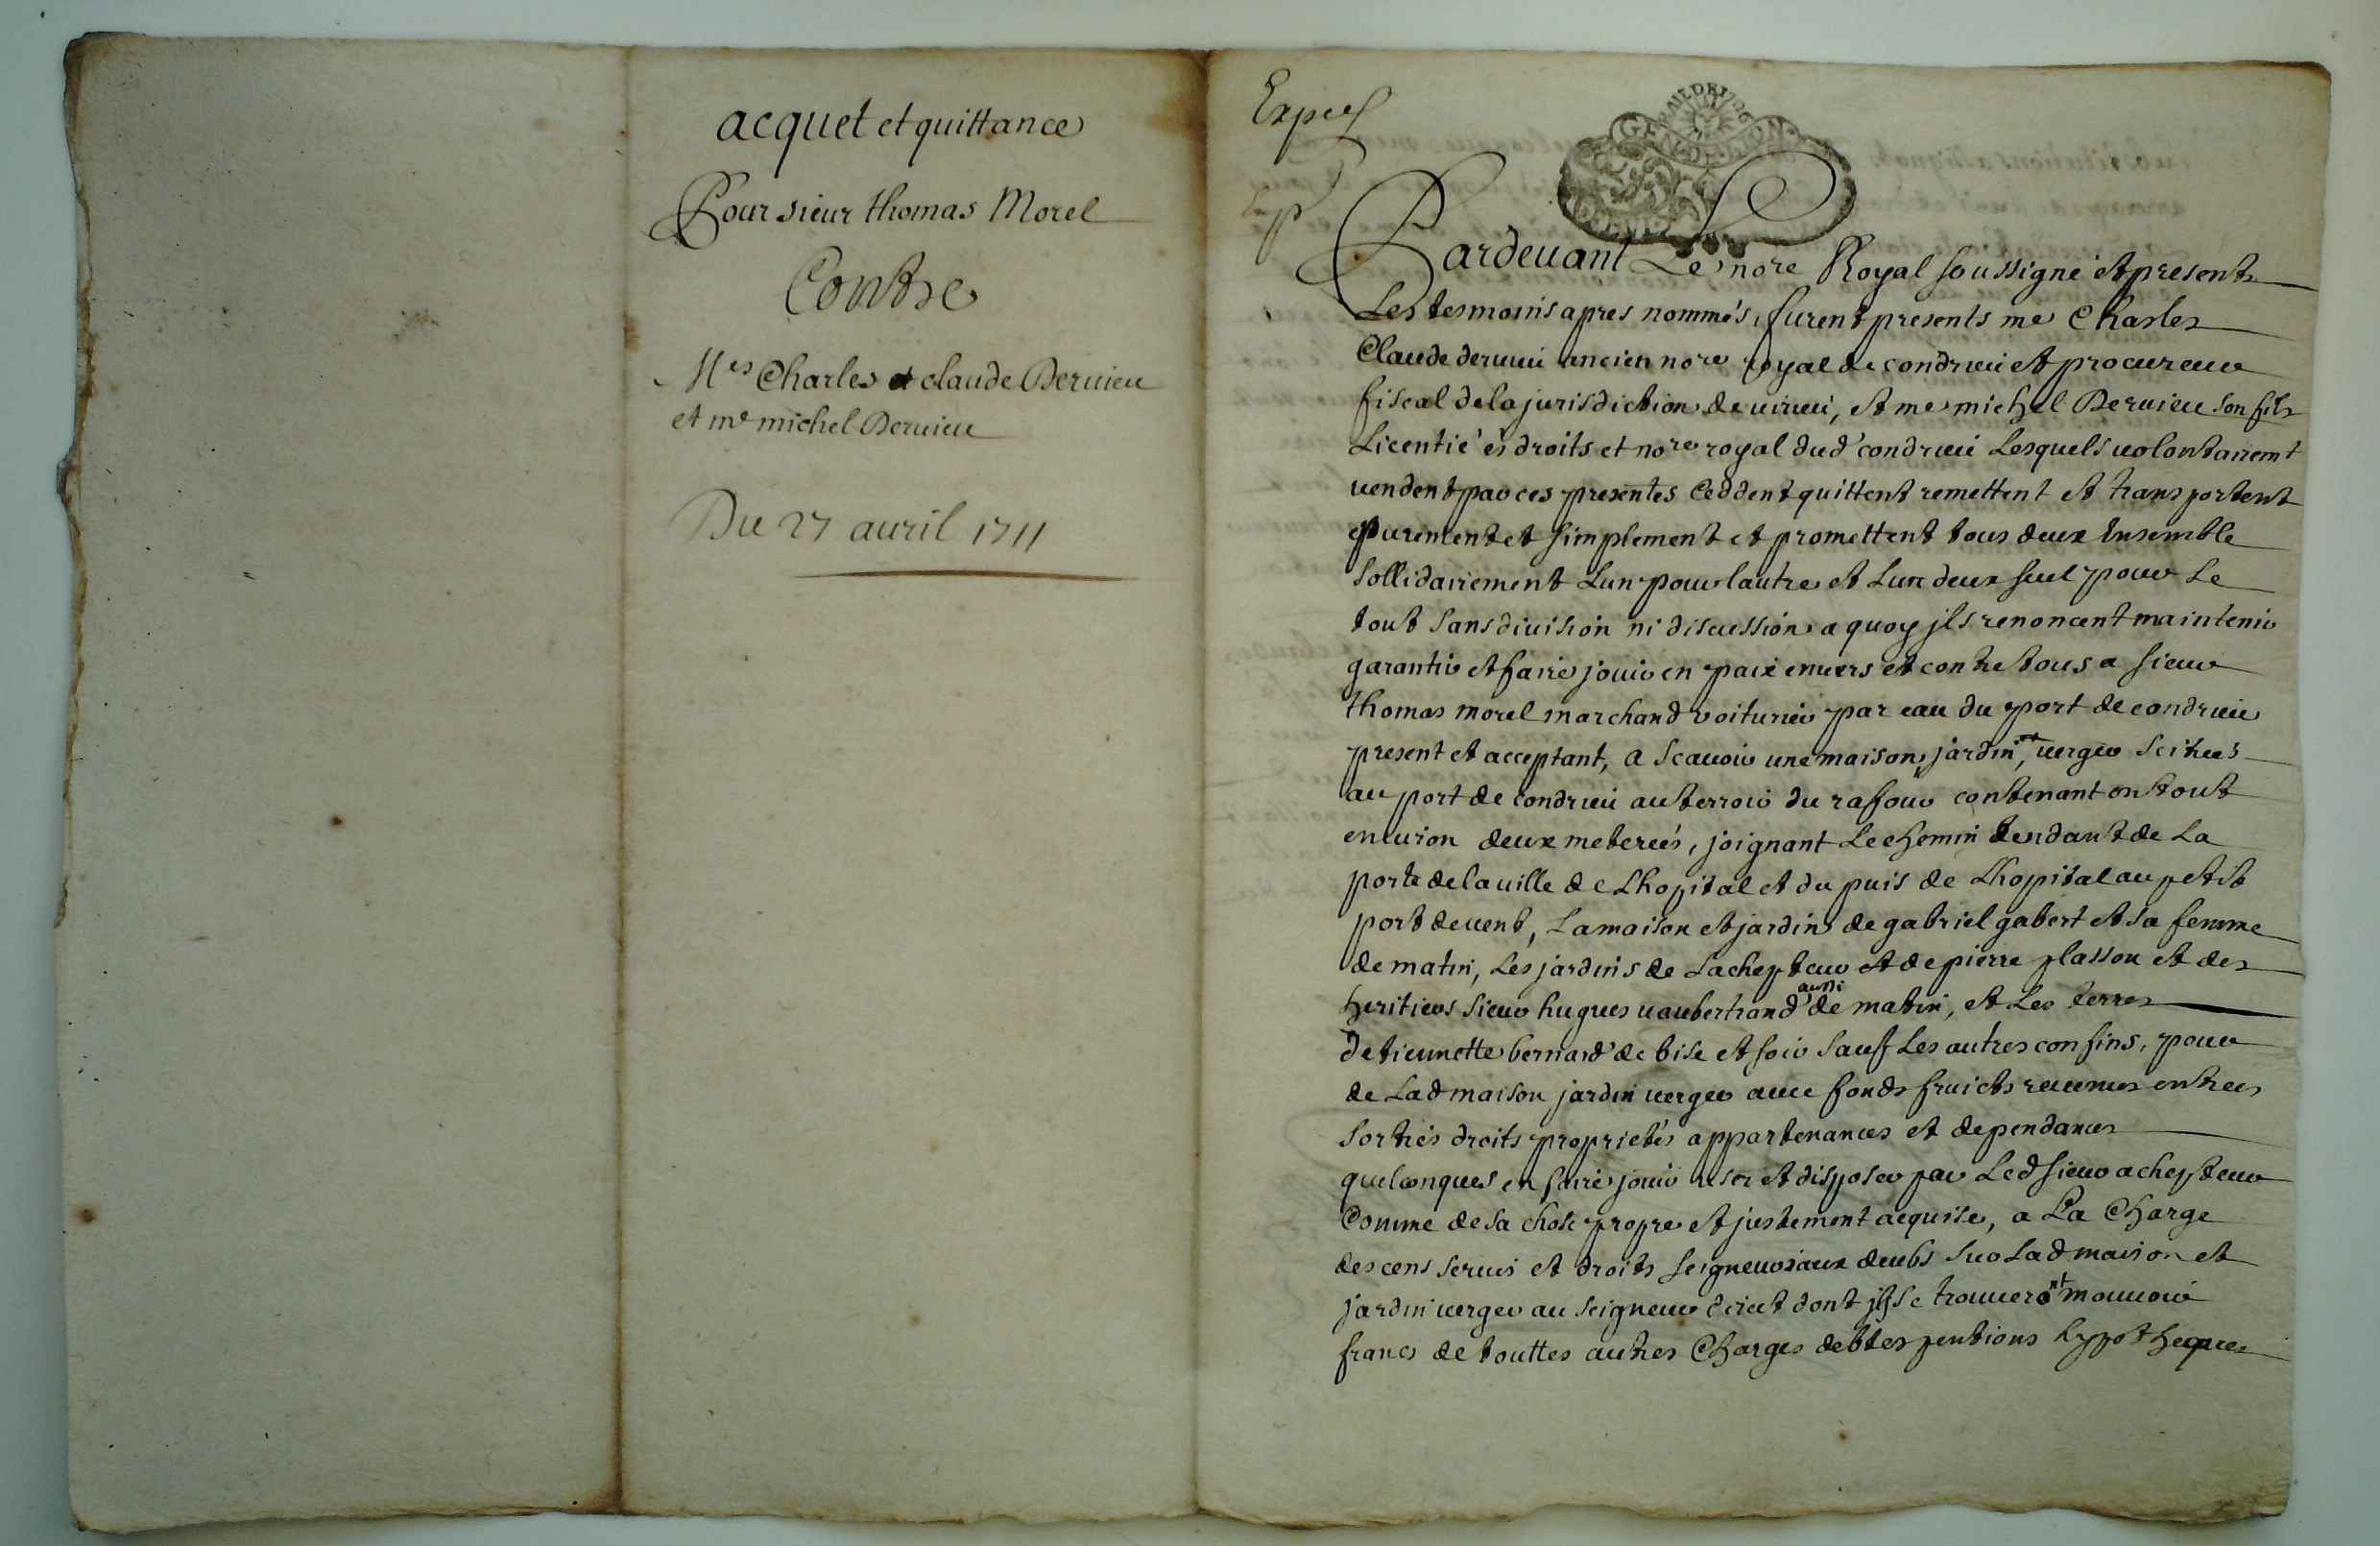 acquet et quittance
Pour sieur thomas Morel
Contre
Mes Charles et claude Dervieu
et me michel Dervieu
Du 27 avril 1711
Expeé
Exp
Pardevant Le nore Royal soussigné et presents
Les tesmoins apres nommés, furent presents me Charles
Claude dervieu ancien nore royal de condrieu et procureur
fiscal de la jurisdiction de virieu, et me michel Dervieu son fils
Licentié és droits et nore royal dud condrieu Lesquels volontairemt
vendent par ces presentes Ceddent quittent remettent et transportent
purement et simplement et promettent tous deux Ensemble
sollidairement Lun pour lautre et Lun deux seul pour Le
tout sans division ni discussion a quoy jls renoncent maintenir
garantir et faire jouir en paix envers et contre tous a sieur
thomas morel marchand voiturier par eau du port de condrieu
present et acceptant, a scavoir une maison, jardin, et verger scitues
au port de condrieu au terroir du rafour contenant en tout
environ deux meterées, joignant Le chemin tendant de La
porte de la ville de Lhopital et du puis de Lhopital au petit
port de vent, La maison et jardin de gabriel gabert et sa femme
de matin, Les jardins de Lachepteur et de pierre plasson et des
heritiers sieur hugues vaubertrand aussi de matin, et Les terres
detiennette bernard de bise et soir sauf Les autres confins, pour
de Lad maison jardin verger avec fonds fruicts revenus entrees
sorties droits proprietés appartenances et dependances
quelconques en faire jouir user et disposer par Led sieur achepteur
Comme de sa chose propre et justement acquise, a La Charge
des cens servis et droits seigneuriaux deubs sur Lad maison et
jardin verger au seigneur direct dont jls se trouveront mouvoir
francs de touttes autres Charges debtes pentions hypotheques